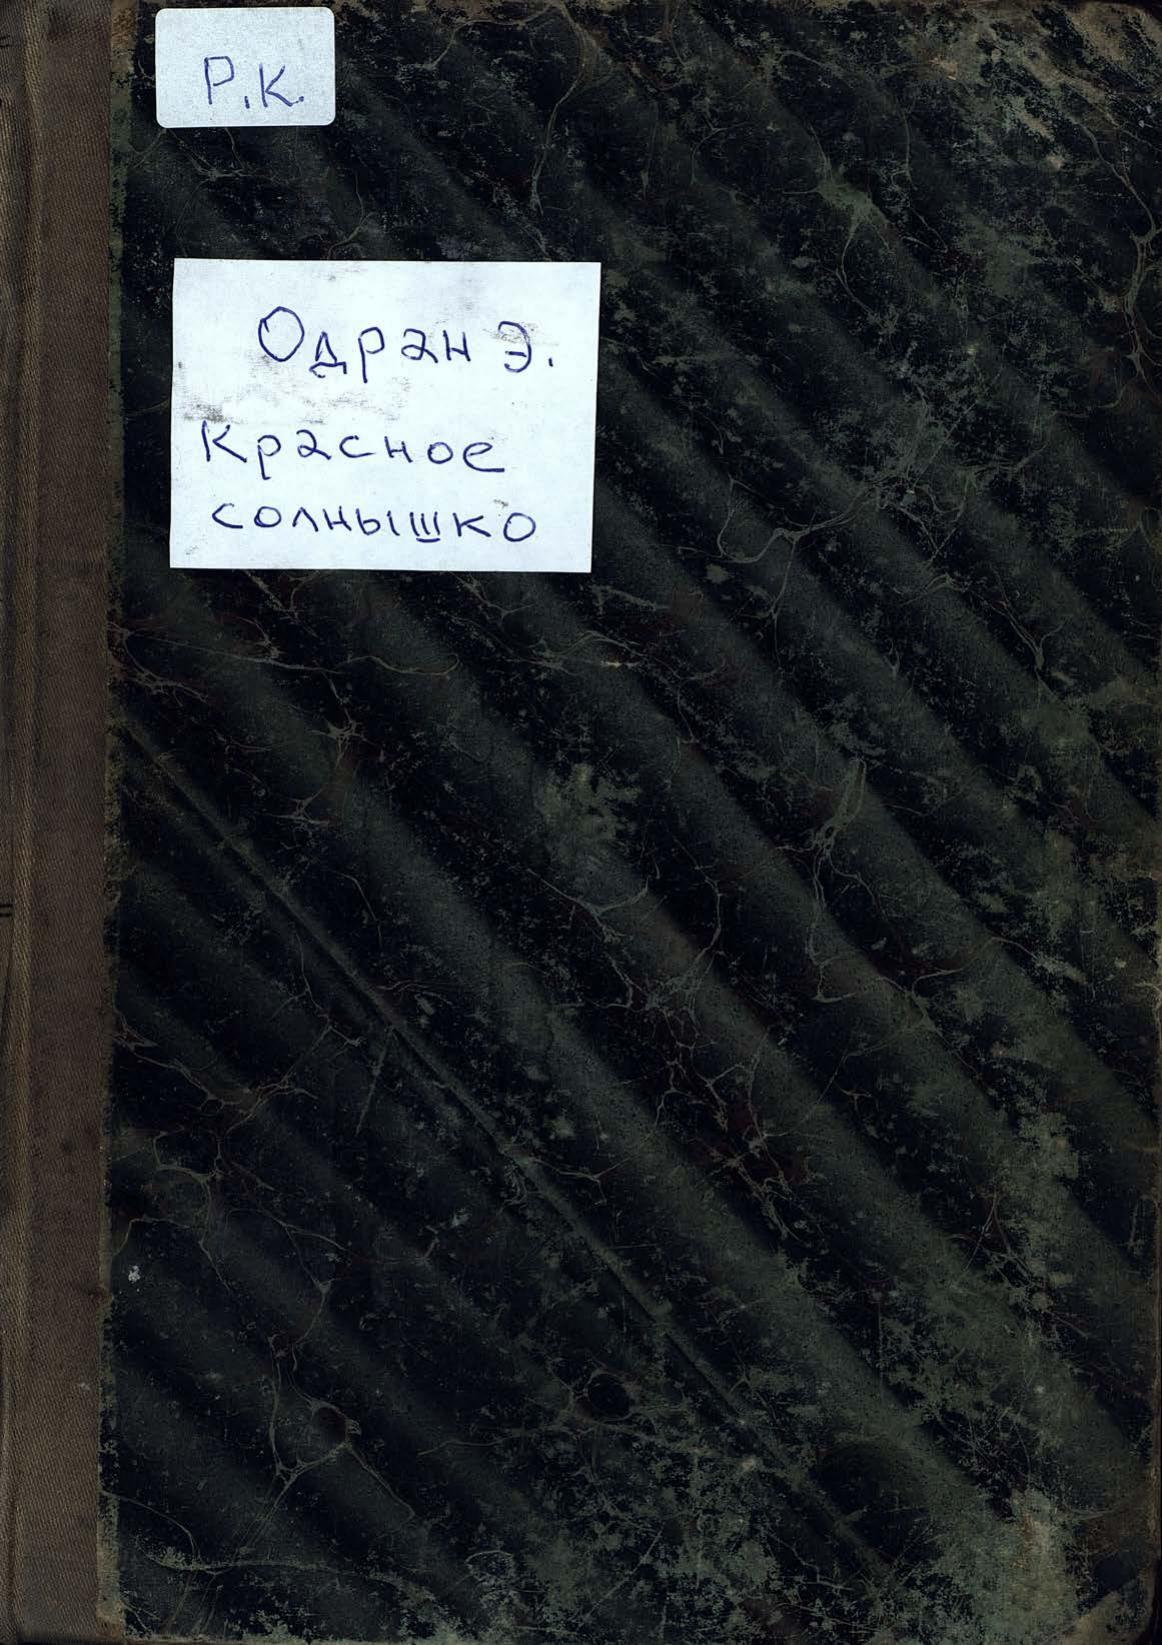 Р.К.
Одран Э.
Красное
солнышко